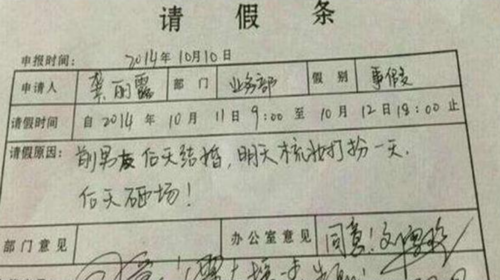 请假条
申报时间： 2014年10月10日
申请人 龚丽露 部门 业务部 假别 事假
请假时间 自2014年10月11日9:00至10月12日18:00止
请假原因： 前男友后天结婚，明天梳妆打扮一天，
后天砸场！
部门意见 办公室意见 同意！